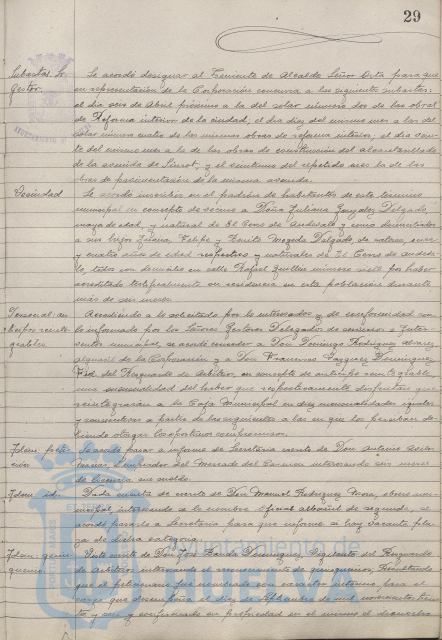 29
Subastas. Gestor.
Se acordó designar al Teniente de Alcalde Señor Ortá para que
en representación de la Corporación concurra a las siguientes subastas:
el día seis de Abril próximo a la del solar número dos de las obras
de Reforma interior de la ciudad, el día diez del mismo mes a la del
solar número cuatro de las mismas obras de reforma interior, el día veinte
del mismo mes a la de las obras de construcción del alcantarillado
de la avenida de Pinzón, y el veintiuno del repetido mes la de las
obras de pavimentación de la misma avenida.
Vecindad
Se acordó inscribir en el padrón de habitantes de este término
municipal en concepto de vecina a Doña Juliana González Delgado,
mayor de edad, y natural de El Cerro de Andévalo y como domiciliados
a sus hijos Felipe y Benito Delgado de catorce,
y cuatro años de edad respectivos y naturales de El Cerro de Andévalo,
todos con domicilio en calle Rafael Guillén número siete por haber
acreditado su residencia en esta población durante
más de seis meses.
Personal, anticipos reintegrables
Accediendo a lo solicitado por los interesados y de conformidad con
lo informado por los Señores Gestores Delegados de servicios e Interventor
municipal, se acordó conceder a Don Domingo Rodríguez Alvarez,
alguacil de la Corporación y a Don Francisco Vazquez Dominguez,
Fiel del Resguardo de Arbitrios, en concepto de anticipo reintegrable,
una mensualidad del haber que respectivamente disfrutan que
reintegrarán a la Caja Municipal en diez mensualidades iguales
y consecutivas a partir de la siguiente a la en que lo perciban debiendo
otorgar los oportunos compromisos.
Idem
Se acordó pasar a informe de Secretaría escrito de Don Antonio
Macías, Limpiador del Mercado del Carmen interesando un mes
de licencia sin sueldo.
Idem id.
Dada cuenta de escrito de Don Manuel Rodríguez Mora, obrero municipal,
interesando se le nombre oficial albañil de segunda, se
acordó pasarlo a Secretaría para que informe si hay vacante plaza
de dicha categoría.
Idem quinquenio
Visto escrito de Don José Dominguez, Vigilante del Resguardo
de Arbitrios interesando el reconocimiento de quinquenios, resultando
que el peticionario fué nombrado con carácter interino para el
cargo que desempeña el diez de Septiembre de mil novecientos treinta
y seis y confirmado en propiedad en el mismo el dieciocho